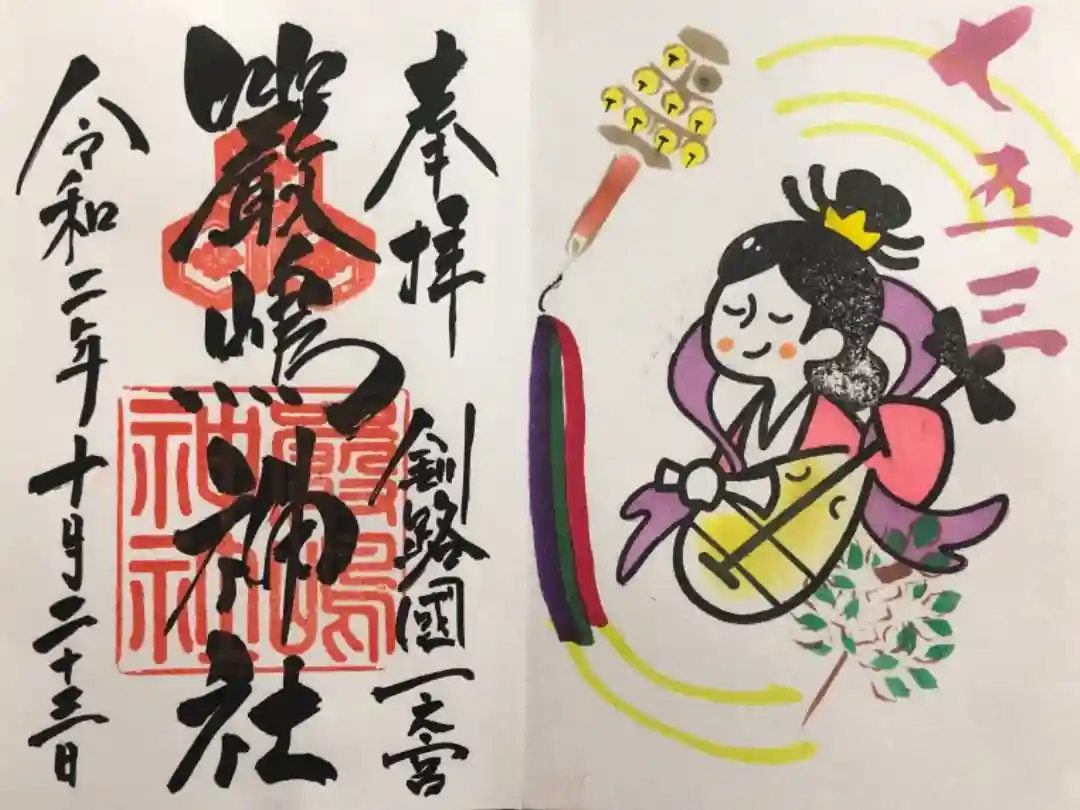 七五三
奉拝
釧路國一之宮
嚴嶋神社
嚴嶋神社
令和二年十月二十三日